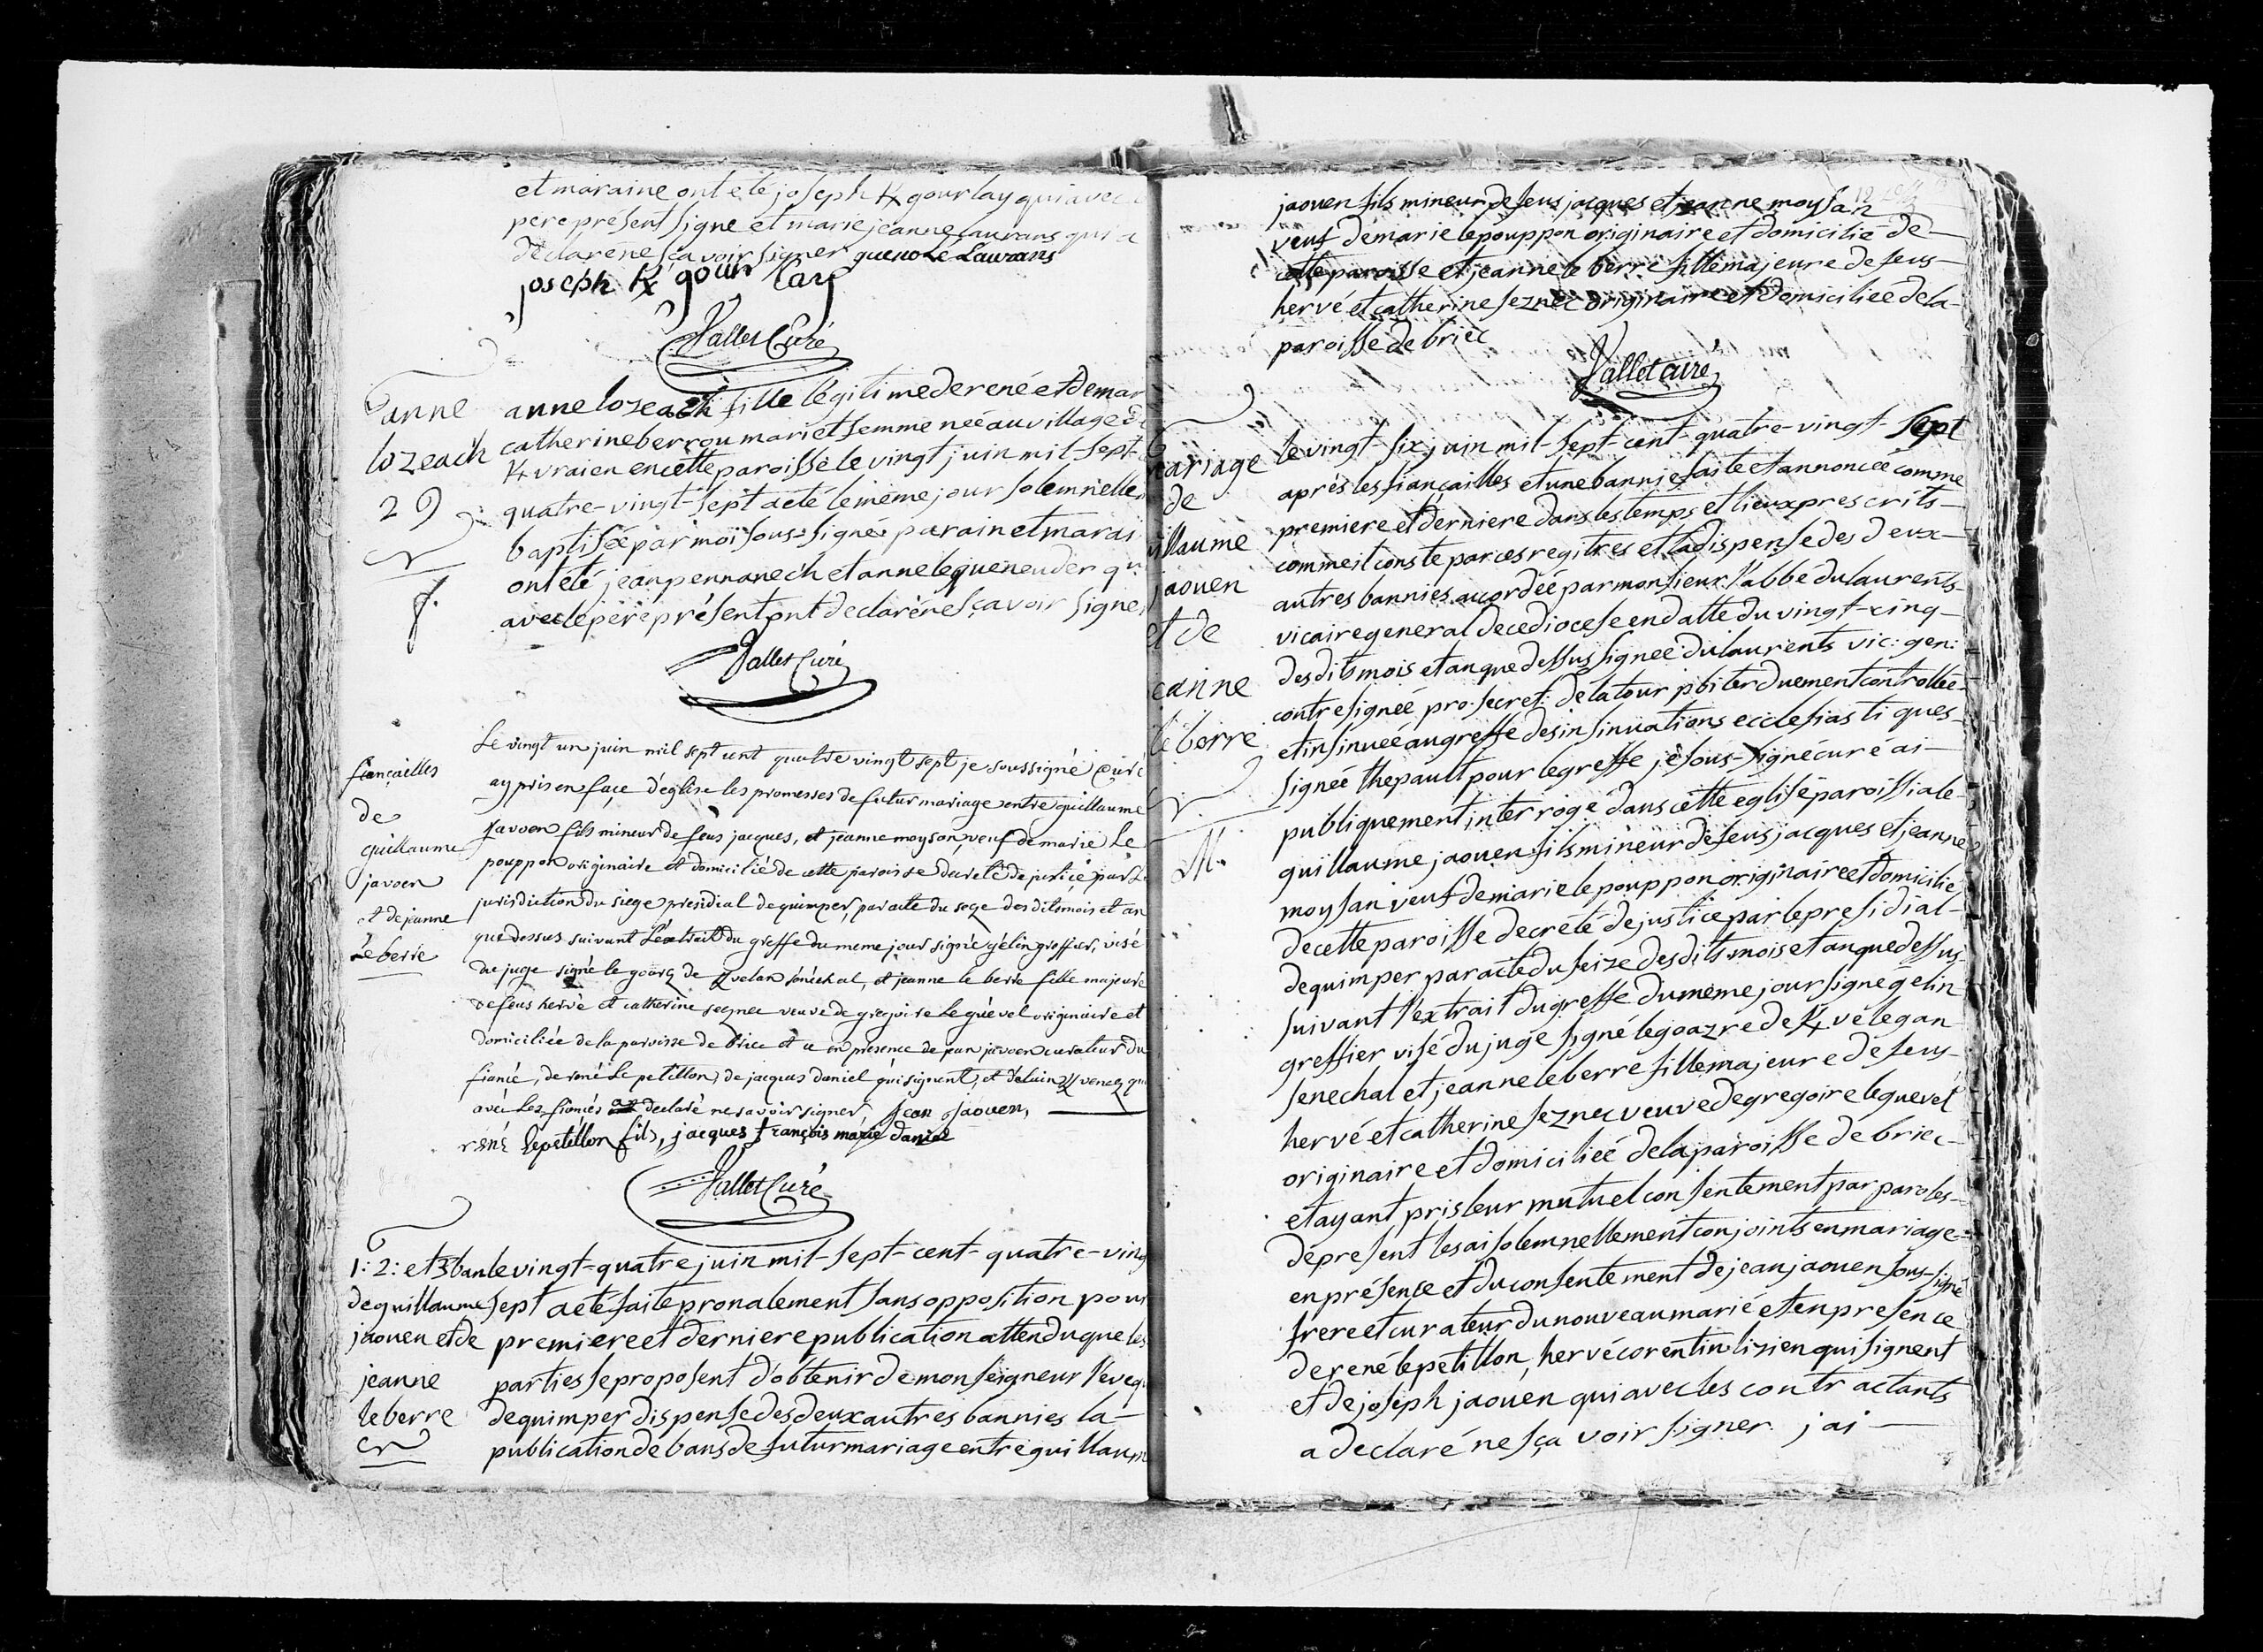 et maraine ont été joseph K/gourlay qui avec
pere present signe et marie jeanne laurans qui a
declaré ne sçavoir signer guenole Laurans
joseph K/gour lay
Vallet Curé
anne
lozeach
29
f.
anne lozeach fille légitime de rené et de mar
catherine berrou mari et femme née au village d
K/vraien en cette paroisse le vingt juin mil-sept-
quatre-vingt-sept a eté le même jour solemnellem
baptisée par moi sous-signé parain et marai
ont été jean pennanech et anne le queneuder qu
avec le pere présent ont declaré ne sçavoir signer
Vallet Curé
fiançailles
de
guillaume
javoen
et de jeanne
Le berre
Le vingt un juin mil sept cent quatre vingt sept je soussigné Curé
ay pris en façe d'église les promesses de futur mariage entre guillaume
Javoen fils mineur de feus jacques, et jeanne moysan, veuf de marie Le
pouppon originaire et domicilié de cette paroisse decreté de justice par Le
jurisdiction du siege presidial de quimper, par acte du seze desdits mois et an
que dessus suivant L'extrait du greffe du meme jour signé gélin greffier, visé
du juge signé le goazre de K/velan sénéchal, et jeanne le berre fille majeure
de feus hervé et catherine seznec veuve de gregoire Le guével originaire et
domiciliée de la paroisse de briec et ce en presence de jean javoen curateur du
fiancé, de rené Le petillon, de jacques daniel qui signent, et d'alain K/venez qui
avec Les fiancés a declaré ne savoir signer, jean jaouen,
rené lepetillon fils, jacques françois marie daniel
Vallet Curé
1: 2: et 3 ban
de guillaume
jaouen et de
jeanne
le berre
le vingt-quatre juin mil-sept-cent-quatre-ving
sept a eté faite pronalement sans opposition pour
premiere et derniere publication attendu que les
parties se proposent d'obtenir de monseigneur l'eveq
de quimper dispense des deux autres bannies la-
publication de bans de futur mariage entre guillaum
jaouen fils mineur de feus jacques et jeanne moysan
veuf de marie le pouppon originaire et domicilié de-
cette paroisse et jeanne le berre fille majeure de feus-
hervé et catherine seznec originaire et domiciliée de la-
paroisse de briec
Vallet curé
mariage
de
uillaume
jaouen
et de
eanne
le berre
M.
le vingt-six juin mil-sept-cent-quatre-vingt-sept
aprés les fiançailles et une bannie faite et annoncée comme
premiere et derniere dans les temps et lieux prescrits-
comme il conste par ces regitres et la dispense des deux-
autres bannies accordée par monsieur l'abbé dulaurents-
vicaire general de ce diocese en datte du vingt-cinq-
desdits mois et an que dessus signeé dulaurents vic: gen:
contresignéé pro: secret: delatour pbiter duement controlleé
et insinuéé au greffe des insinuations ecclesiastiques-
signeé thepault pour le greffe je sous-signé curé ai-
publiquement interrogé dans cette eglise paroissiale-
guillaume jaouen fils mineur de feus jacques et jeanne
moysan veuf de marie le pouppon originaire et domicilié
de cette paroisse decrété de justice par le presidial-
de quimper par acte du seize desdits mois et an que dessus
suivant l'extrait du greffe du même jour signé gelin
greffier visé du juge signé le goazre de K/vélegan
senechal et jeanne le berre fille majeure de feus-
hervé et catherine seznec veuve de gregoire le guevel
originaire et domiciliéé de la paroisse de briec-
et ayant pris leur mutuel consentement par paroles-
dépresent les ai solemnellement conjoints en mariage-
en présence et du consentement de jean jaouen sous-signé
frere et curateur du nouveau marié et en presence
de rené le petillon, hervé corentin lizien qui signent
et de joseph jaouen qui avec les contractants
a declaré ne sça voir signer. j'ai-